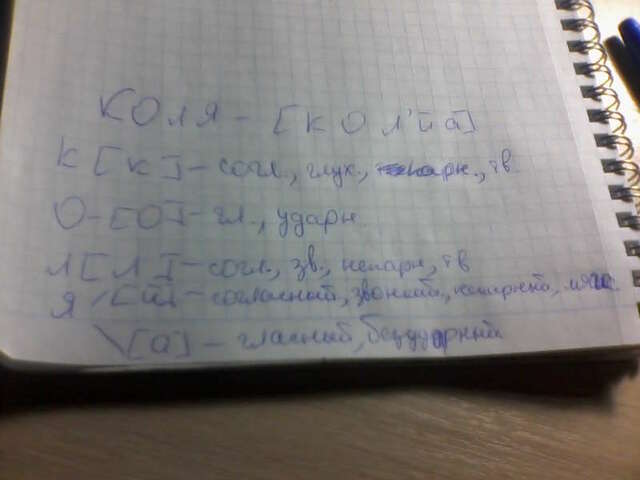 КОЛЯ - [К О Л' Й А]
К [К] - согл., глух., парн., тв.
О - [О] - гл., ударн.
Л [Л] - согл., зв., непарн., тв
Я [Й] - согласный, звонкий, непарный, мягк.
[а] - гласный, безударный